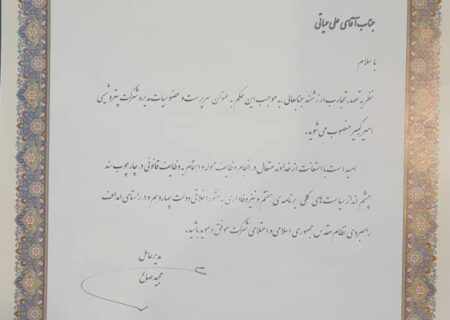 جناب آقای علی حیاتی
با سلام
نظر به تعهد، تجارب ارزشمند جنابعالی، به موجب این حکم به عنوان سرپرست و عضو هیات مدیره شرکت پتروشیمی
امیرکبیر منصوب می شوید.
امید است با استعانت از خداوند متعال در انجام وظایف محوله و اهتمام به وظایف قانونی در چارچوب سند
چشم انداز سیاست های کلی برنامه ی هفتم و نیز وفاداری به منشور اخلاقی دولت چهاردهم و در راستای اهداف
راهبردی نظام مقدس جمهوری اسلامی و اعتلای شرکت موفق و موید باشید.
مدیرعامل